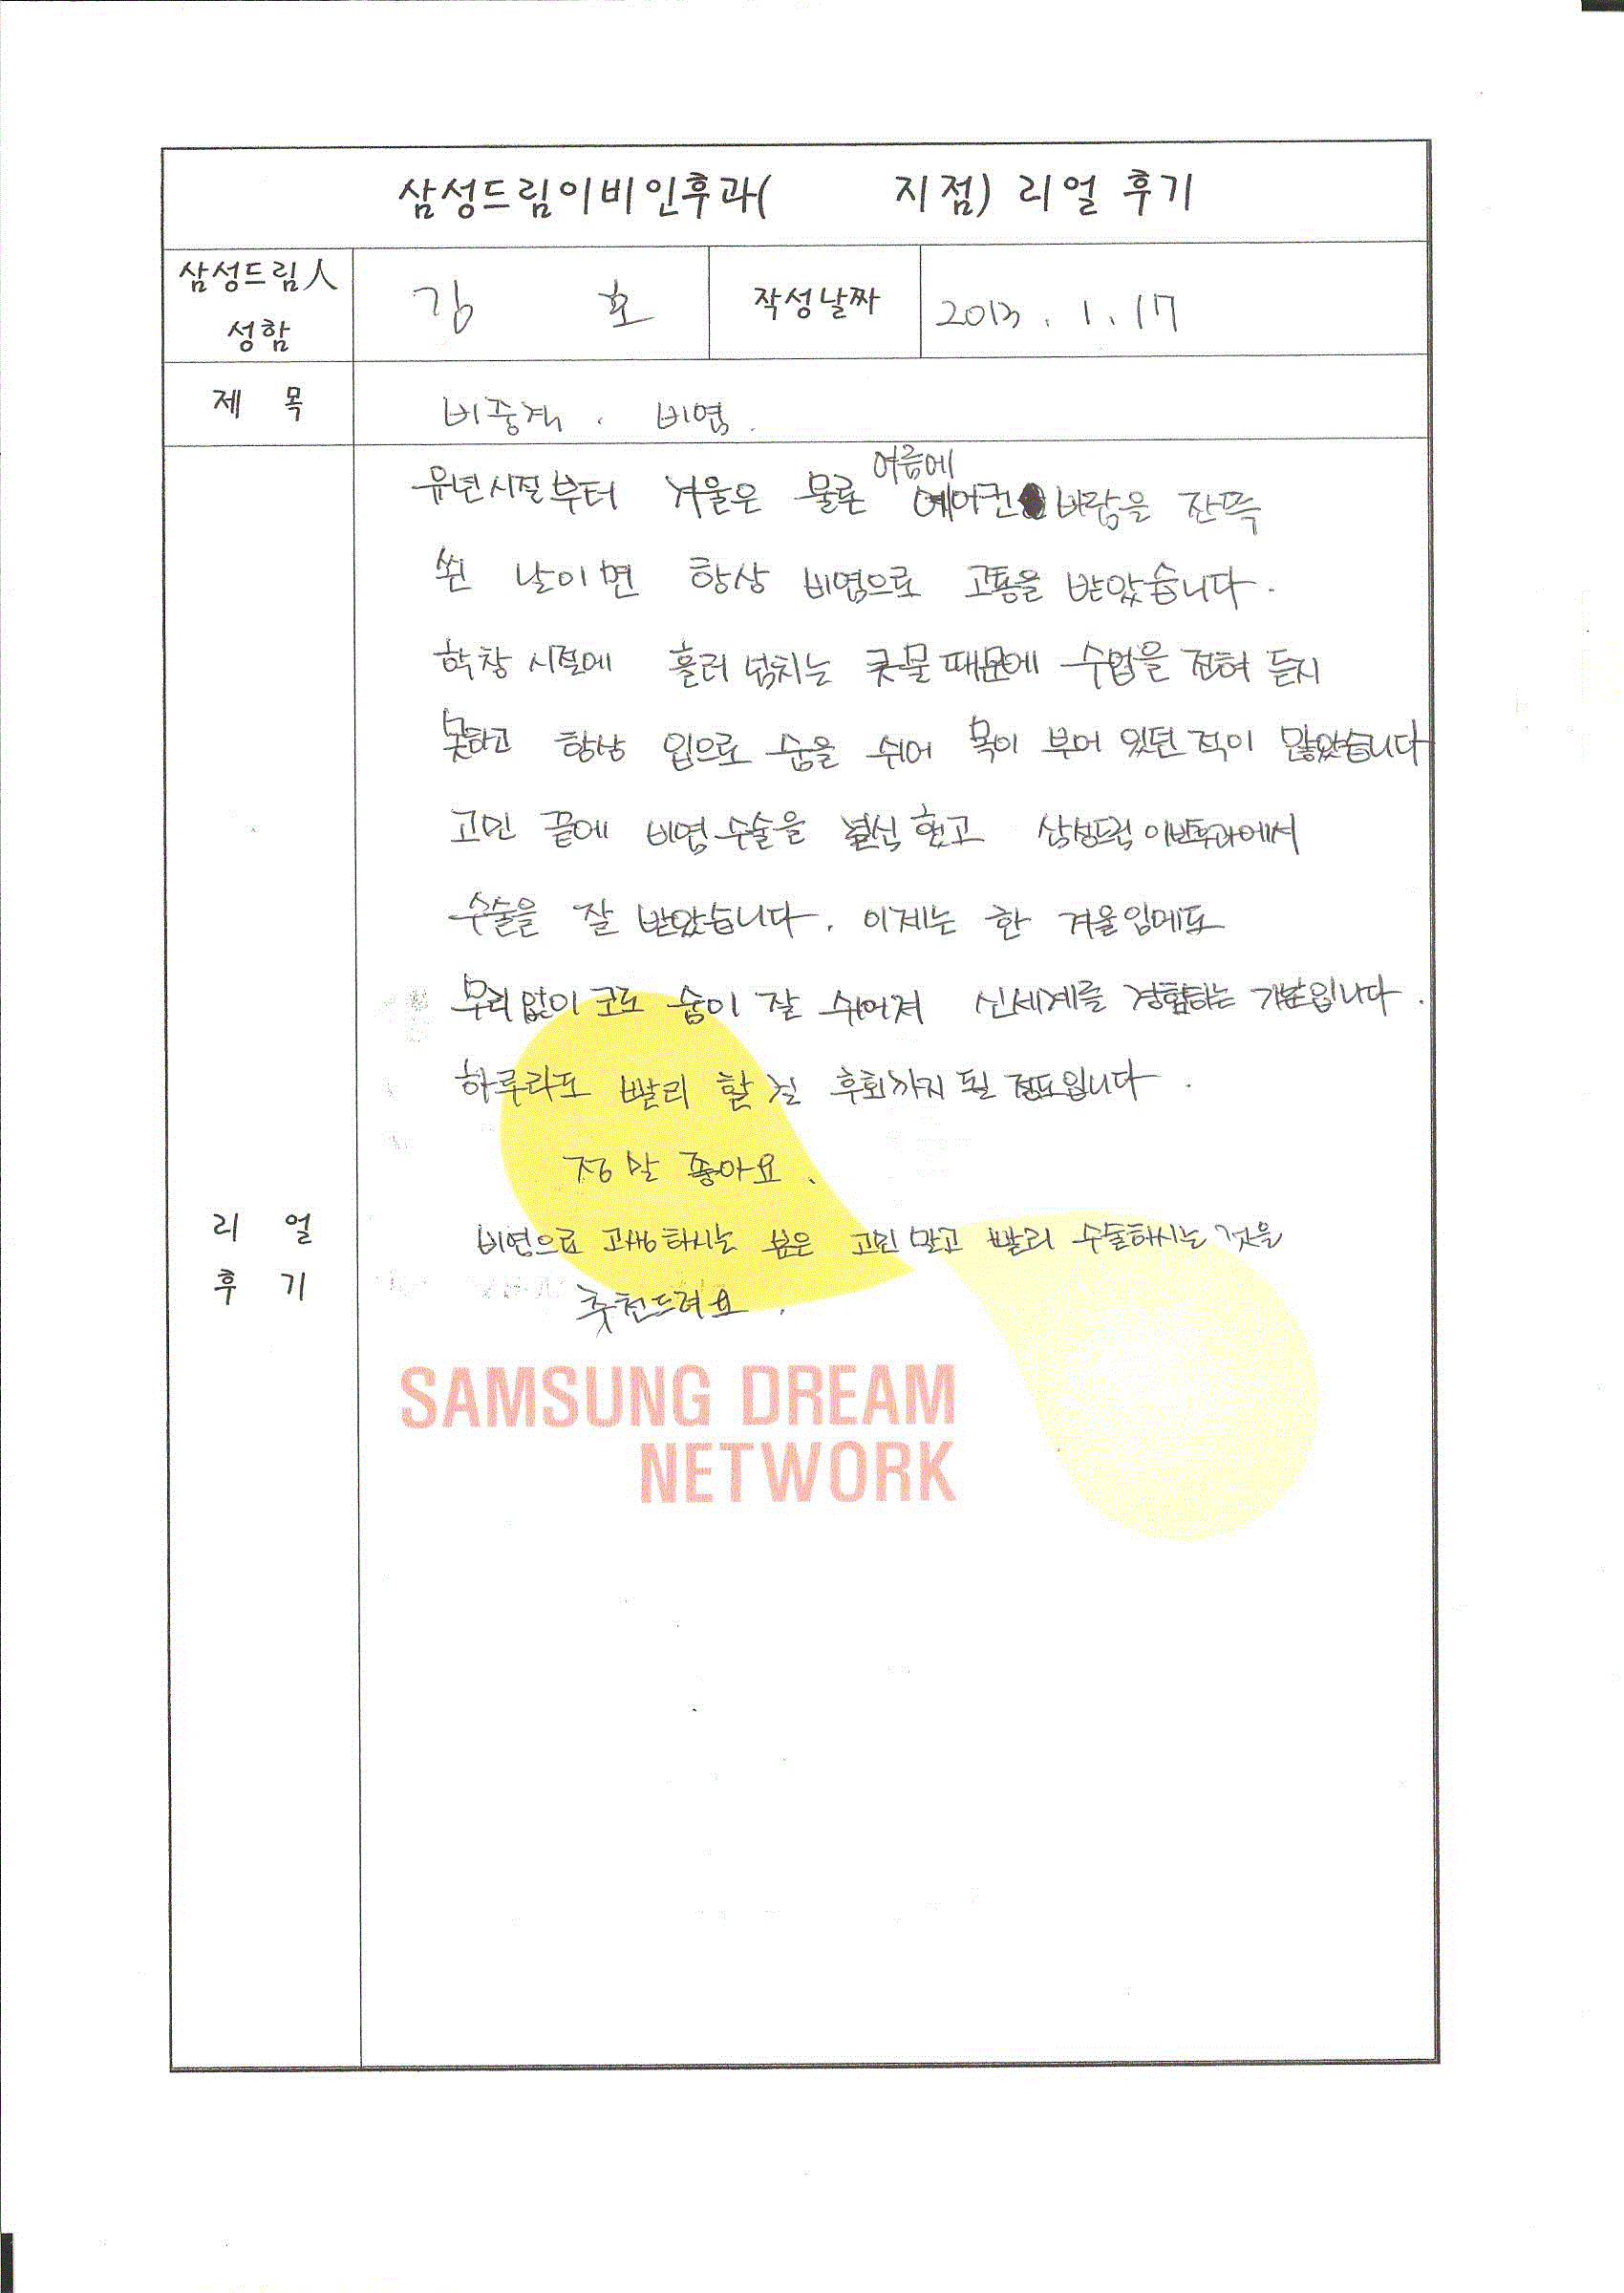 삼성드림이비인후과( 지점) 리얼 후기
삼성드림人 성함
김 호
작성날짜
2013. 1. 17
제 목
비중격 . 비염.
여름에
유년시절부터 겨울은 물론 에어컨 바람을 잔뜩
쐰 날이면 항상 비염으로 고통을 받았습니다.
학창 시절에 흘러 넘치는 콧물 때문에 수업을 전혀 듣지
못하고 항상 입으로 숨을 쉬어 목이 부어 있던 적이 많았습니다
고민 끝에 비염 수술을 결심 했고 삼성드림 이비후과에서
수술을 잘 받았습니다. 이제는 한 겨울임에도
무리없이 코로 숨이 잘 쉬어져 신세계를 경험하는 기분입니다.
하루라도 빨리 할 걸 후회까지 될 정도입니다.
정말 좋아요.
비염으로 고생하시는 분은 고민 말고 빨리 수술하시는 것을
추천드려요.
리 얼
후 기
SAMSUNG DREAM
NETWORK